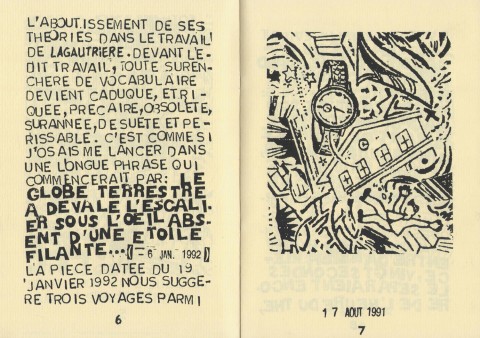 L'ABOUTISSEMENT DE SES
THÉORIES DANS LE TRAVAIL
DE LAGAUTRIERE. DEVANT LE-
DIT TRAVAIL, TOUTE SUREN-
CHERE DE VOCABULAIRE
DEVIENT CADUQUE, ETRI-
QUÉE, PRECAIRE, OBSOLETE,
SURANNEE, DESUETE ET PE-
RISSABLE. C'EST COMME SI
J'OSAIS ME LANCER DANS
UNE LONGUE PHRASE QUI
COMMENCERAIT PAR: LE
GLOBE TERRESTRE
A DEVALE L'ESCALI-
ER SOUS L'OEIL ABS-
ENT D'UNE ETOILE
FILANTE...[ – 6 JAN. 1992 ]
LA PIECE DATEE DU 19
JANVIER 1992 NOUS SUGGE-
RE TROIS VOYAGES PARMI
6
17 AOUT 1991
7